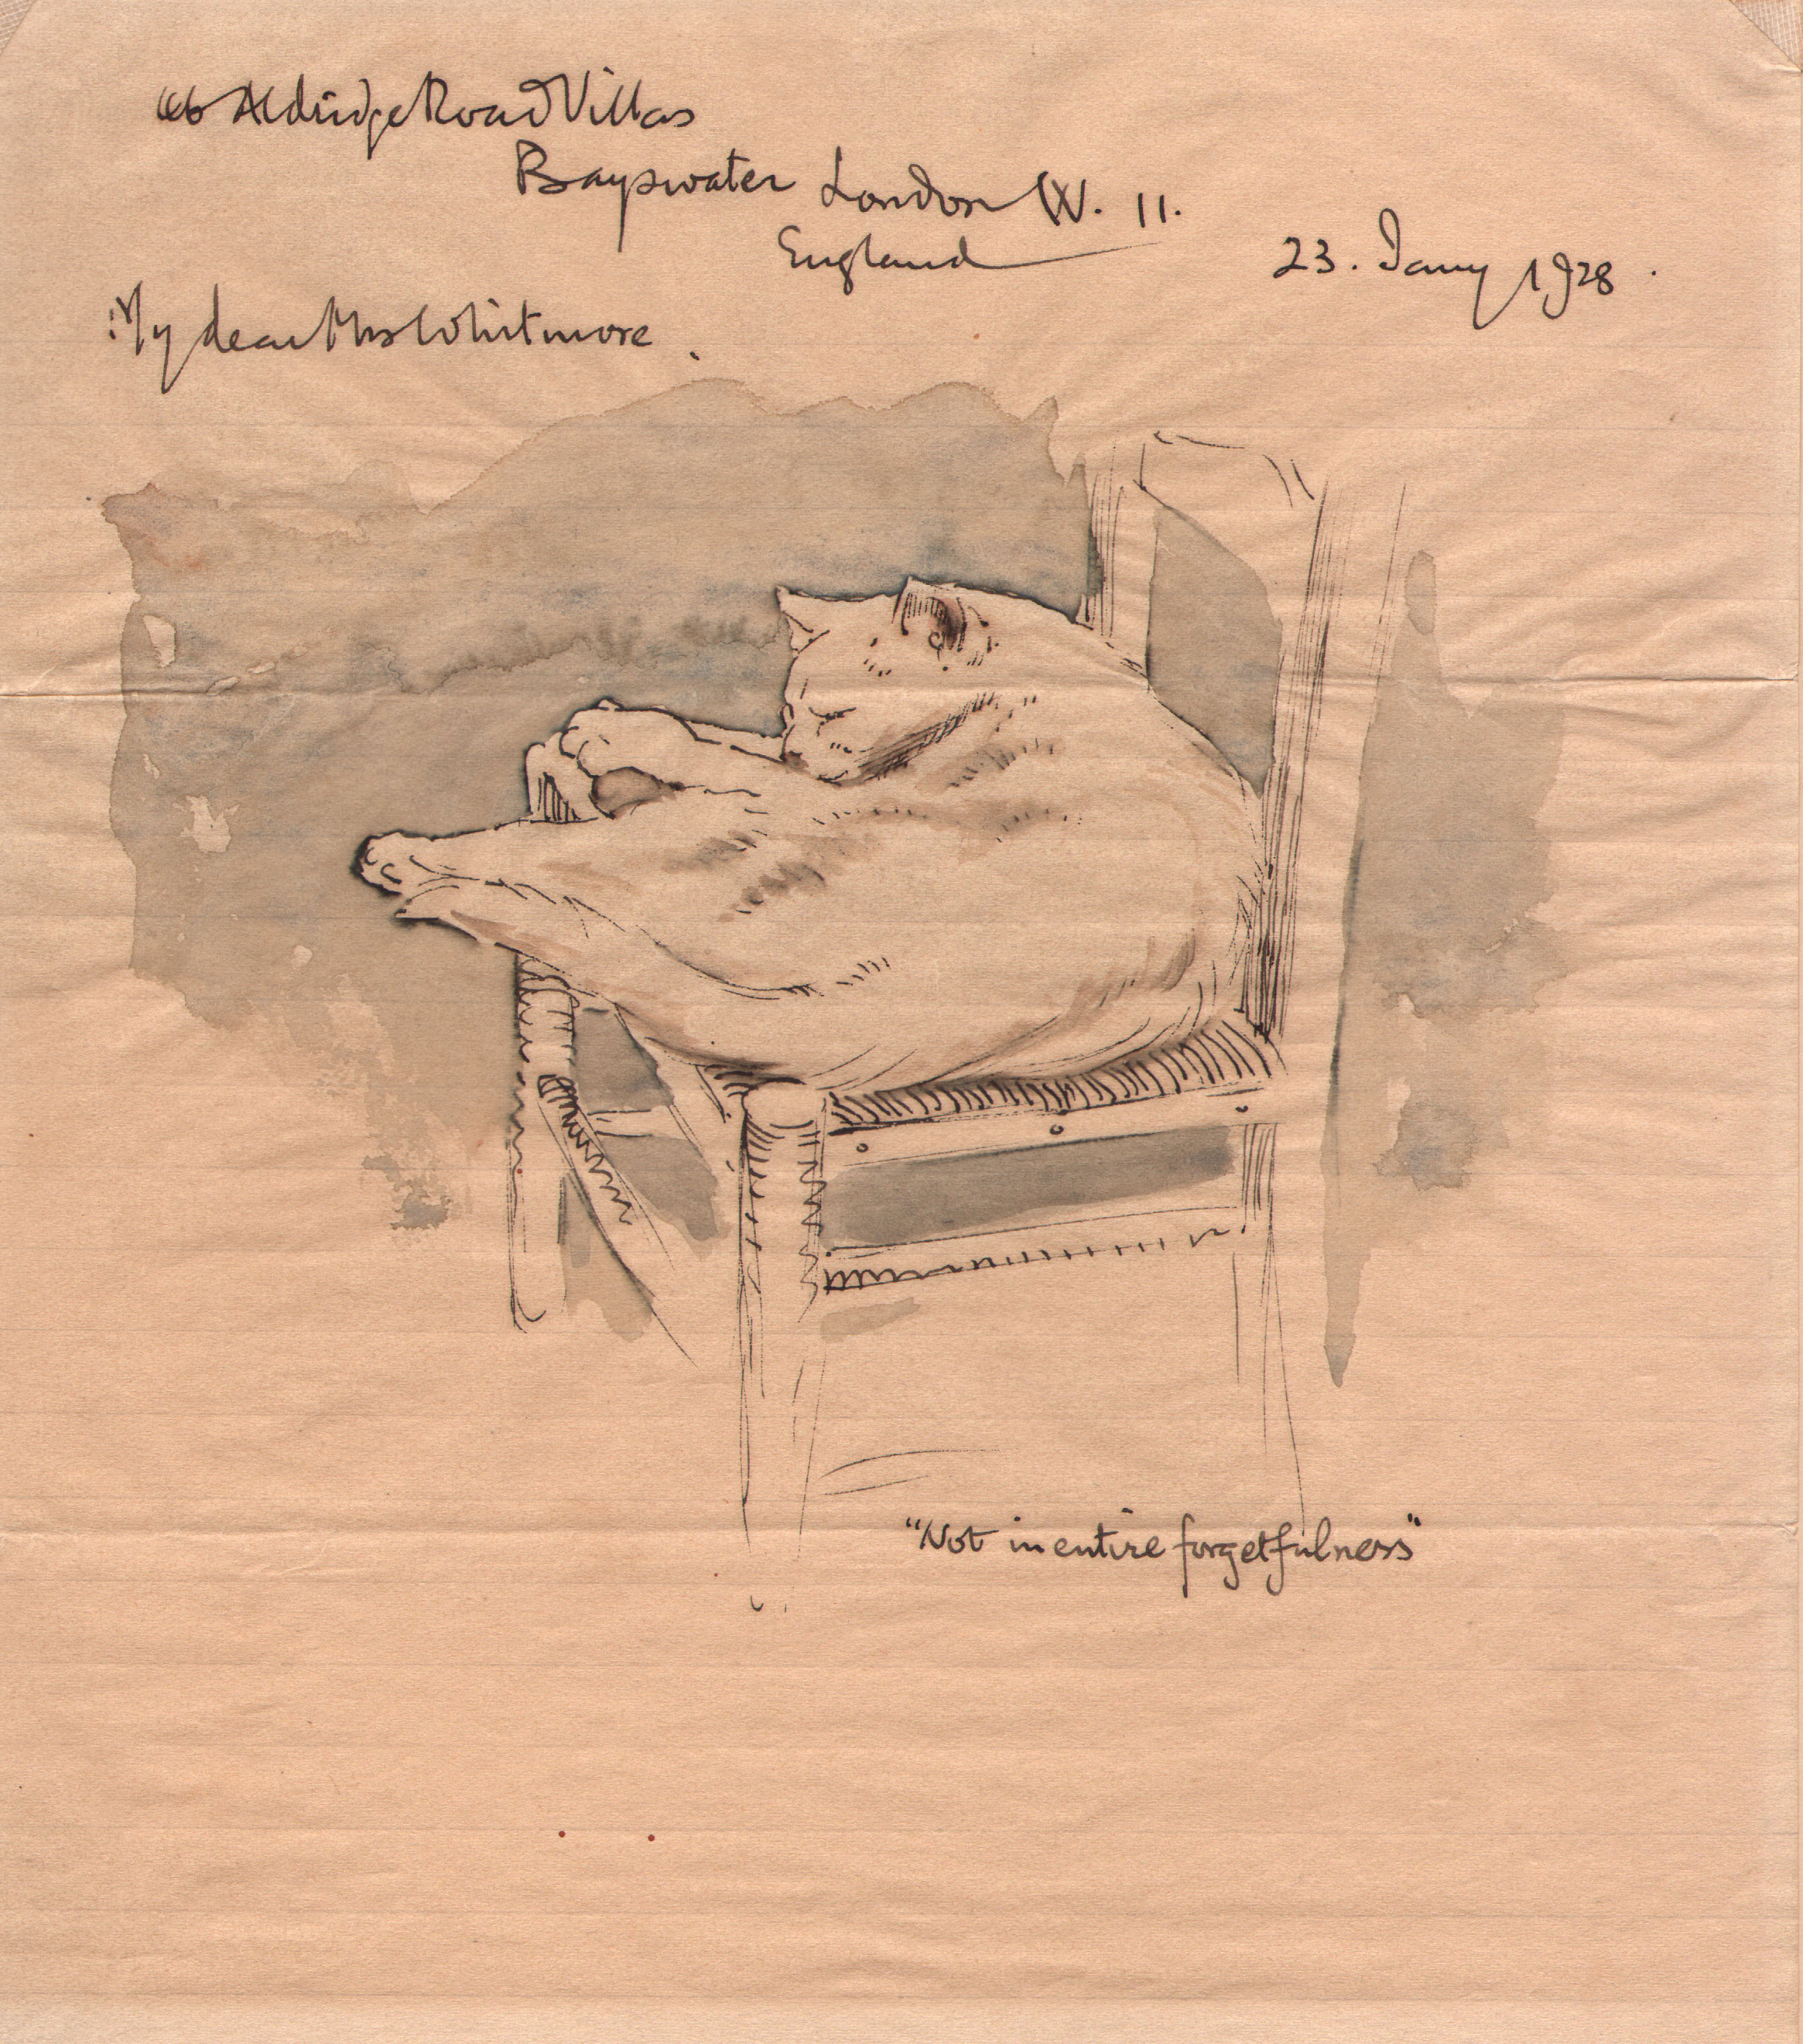 66 Aldridge Road Villas
Bayswater London W. 11.
England
23. Jany 1928.
My dear Mrs Whitmore.
"Not in entire forgetfulness"